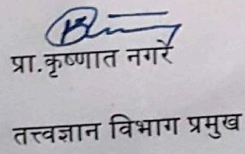 प्रा.कृष्णात नगरे
तत्त्वज्ञान विभाग प्रमुख